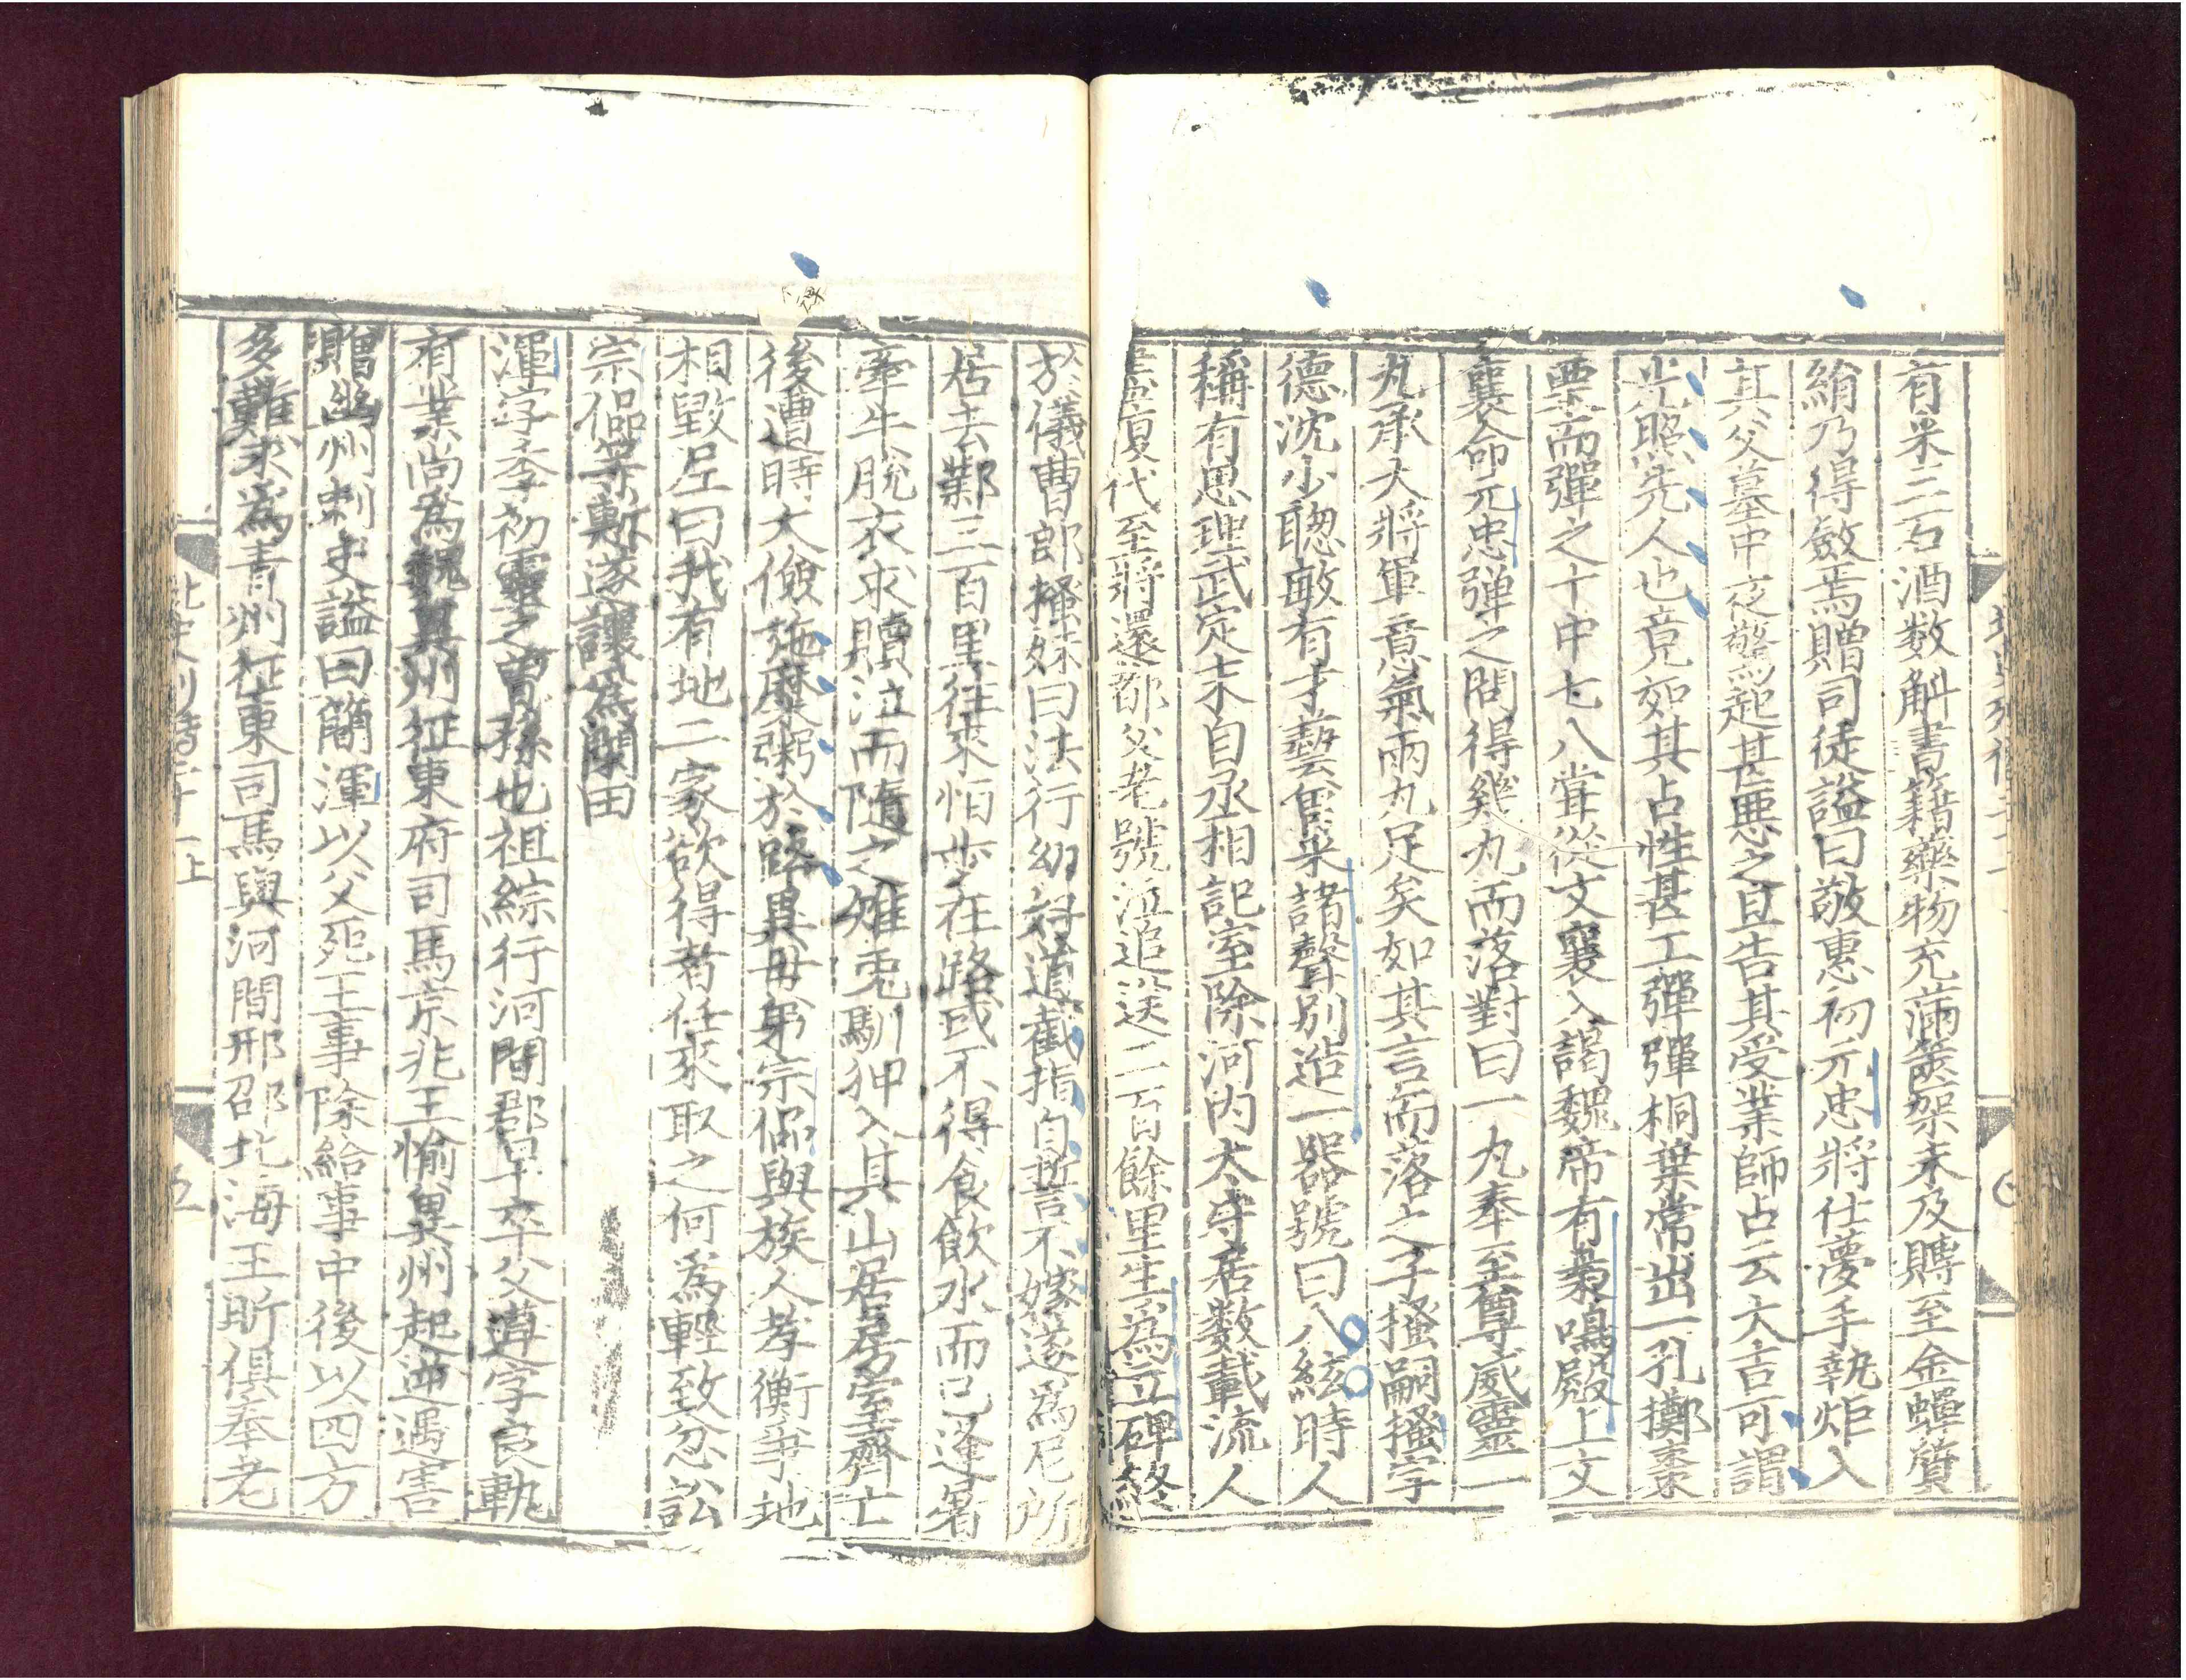 有米三石酒数斛書籍藥物充滿篋架未及賻至金蟬質
絹乃得斂焉贈司徒謚曰敬惠初元忠將仕夢手執炬入
其父墓中夜驚起甚悪之旦告其受業師占云大吉可謂
光照先人也竟如其占性甚工彈彈桐葉常出一孔擲棗
栗而彈之十中七八嘗從文襄入謁魏帝有梟鳴殿上文
襄命元忠彈之問得幾丸而落對曰一丸奉至尊威靈一
丸承大將軍意氣兩丸足矣如其言而落之子搔嗣搔字
德沈少聡敏有才藝曾采諸聲別造一器號曰八絃時人
稱有思理武定末自丞相記室除河内太守居数載流人
代至將還都父老號泣追送二百餘里生爲立碑終
於儀曹郎搔妹曰法行幼好道截指自誓不嫁遂爲尼所
居去鄴三百里往來怕步在路或不得食飲水而已逢屠
牽牛脫衣求贖泣而隨之雉兎馴狎入其山居房室齊亡
後遭時大儉施糜粥於路異母弟宗偘與族人孝衡爭地
相毀压曰我有地二家欲得者任來取之何爲輕致忿訟
宗偘等慙遂讓爲閑田
渾字季初靈之曽孫也祖綜行河間郡早卒父遵字良軌
有業尚爲魏兾州征東府司馬京兆王愉兾州起逆遇害
贈幽州刺史謚曰簡渾以父死王事除給事中後以四方
多難求爲青州征東司馬與河間邢邵北海王昕俱奉老
北史列傳二十一上
五